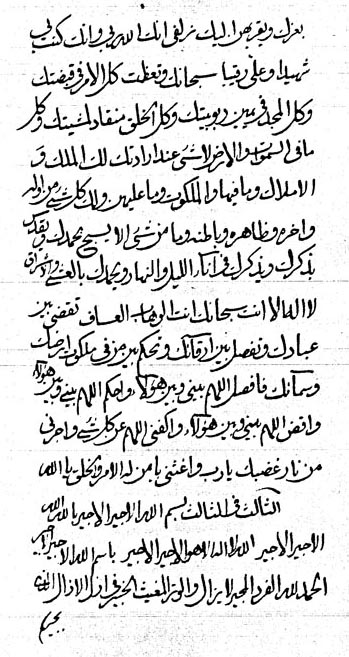 بعزك ويقربهن اليك زلفى انك الله ربي وانك كنت بي
شهيدا وعلي رقيبا سبحانك وتعظمت كل الامر في قبضتك
وكل المجد في يمين ربوبيتك وكل الخلق منقاد لمشيتك وكل
ما في السموات والارض لاشئ عند ارادتك لك الملك و
الاملاك وما فيها والملكوت وما عليهن ولك كل شئ من اوله
واخره وظاهره وباطنه وما من شئ الا يسبح بحمدك ويقدسك
بذكرك ويذكرك في اناء الليل والنهار ويحمدك بالعشي والاشراق
لا اله الا انت سبحانك انت الوهاب تقضي بين
عبادك وتفصل بين ارقائك وتحكم بين من في ملكوت ارضك
وسمائك فافصل اللهم بيني وبين هؤلاء واحكم اللهم بيني وبين هؤلاء
واقض اللهم بيني وبين هؤلاء واكفني اللهم عن كل شئ واجرني
من نار غضبك يارب واغثني يا من له الامر والخلق يا الله
الثالث في الثالث بسم الله الاجبر الاجبر بالله الله
الاجبر الاجبر الله لا اله الا هو الاجبر الاجبر باسم الله الاجبر
الحمد لله الفرد لايزال والوتر في ازل الازال